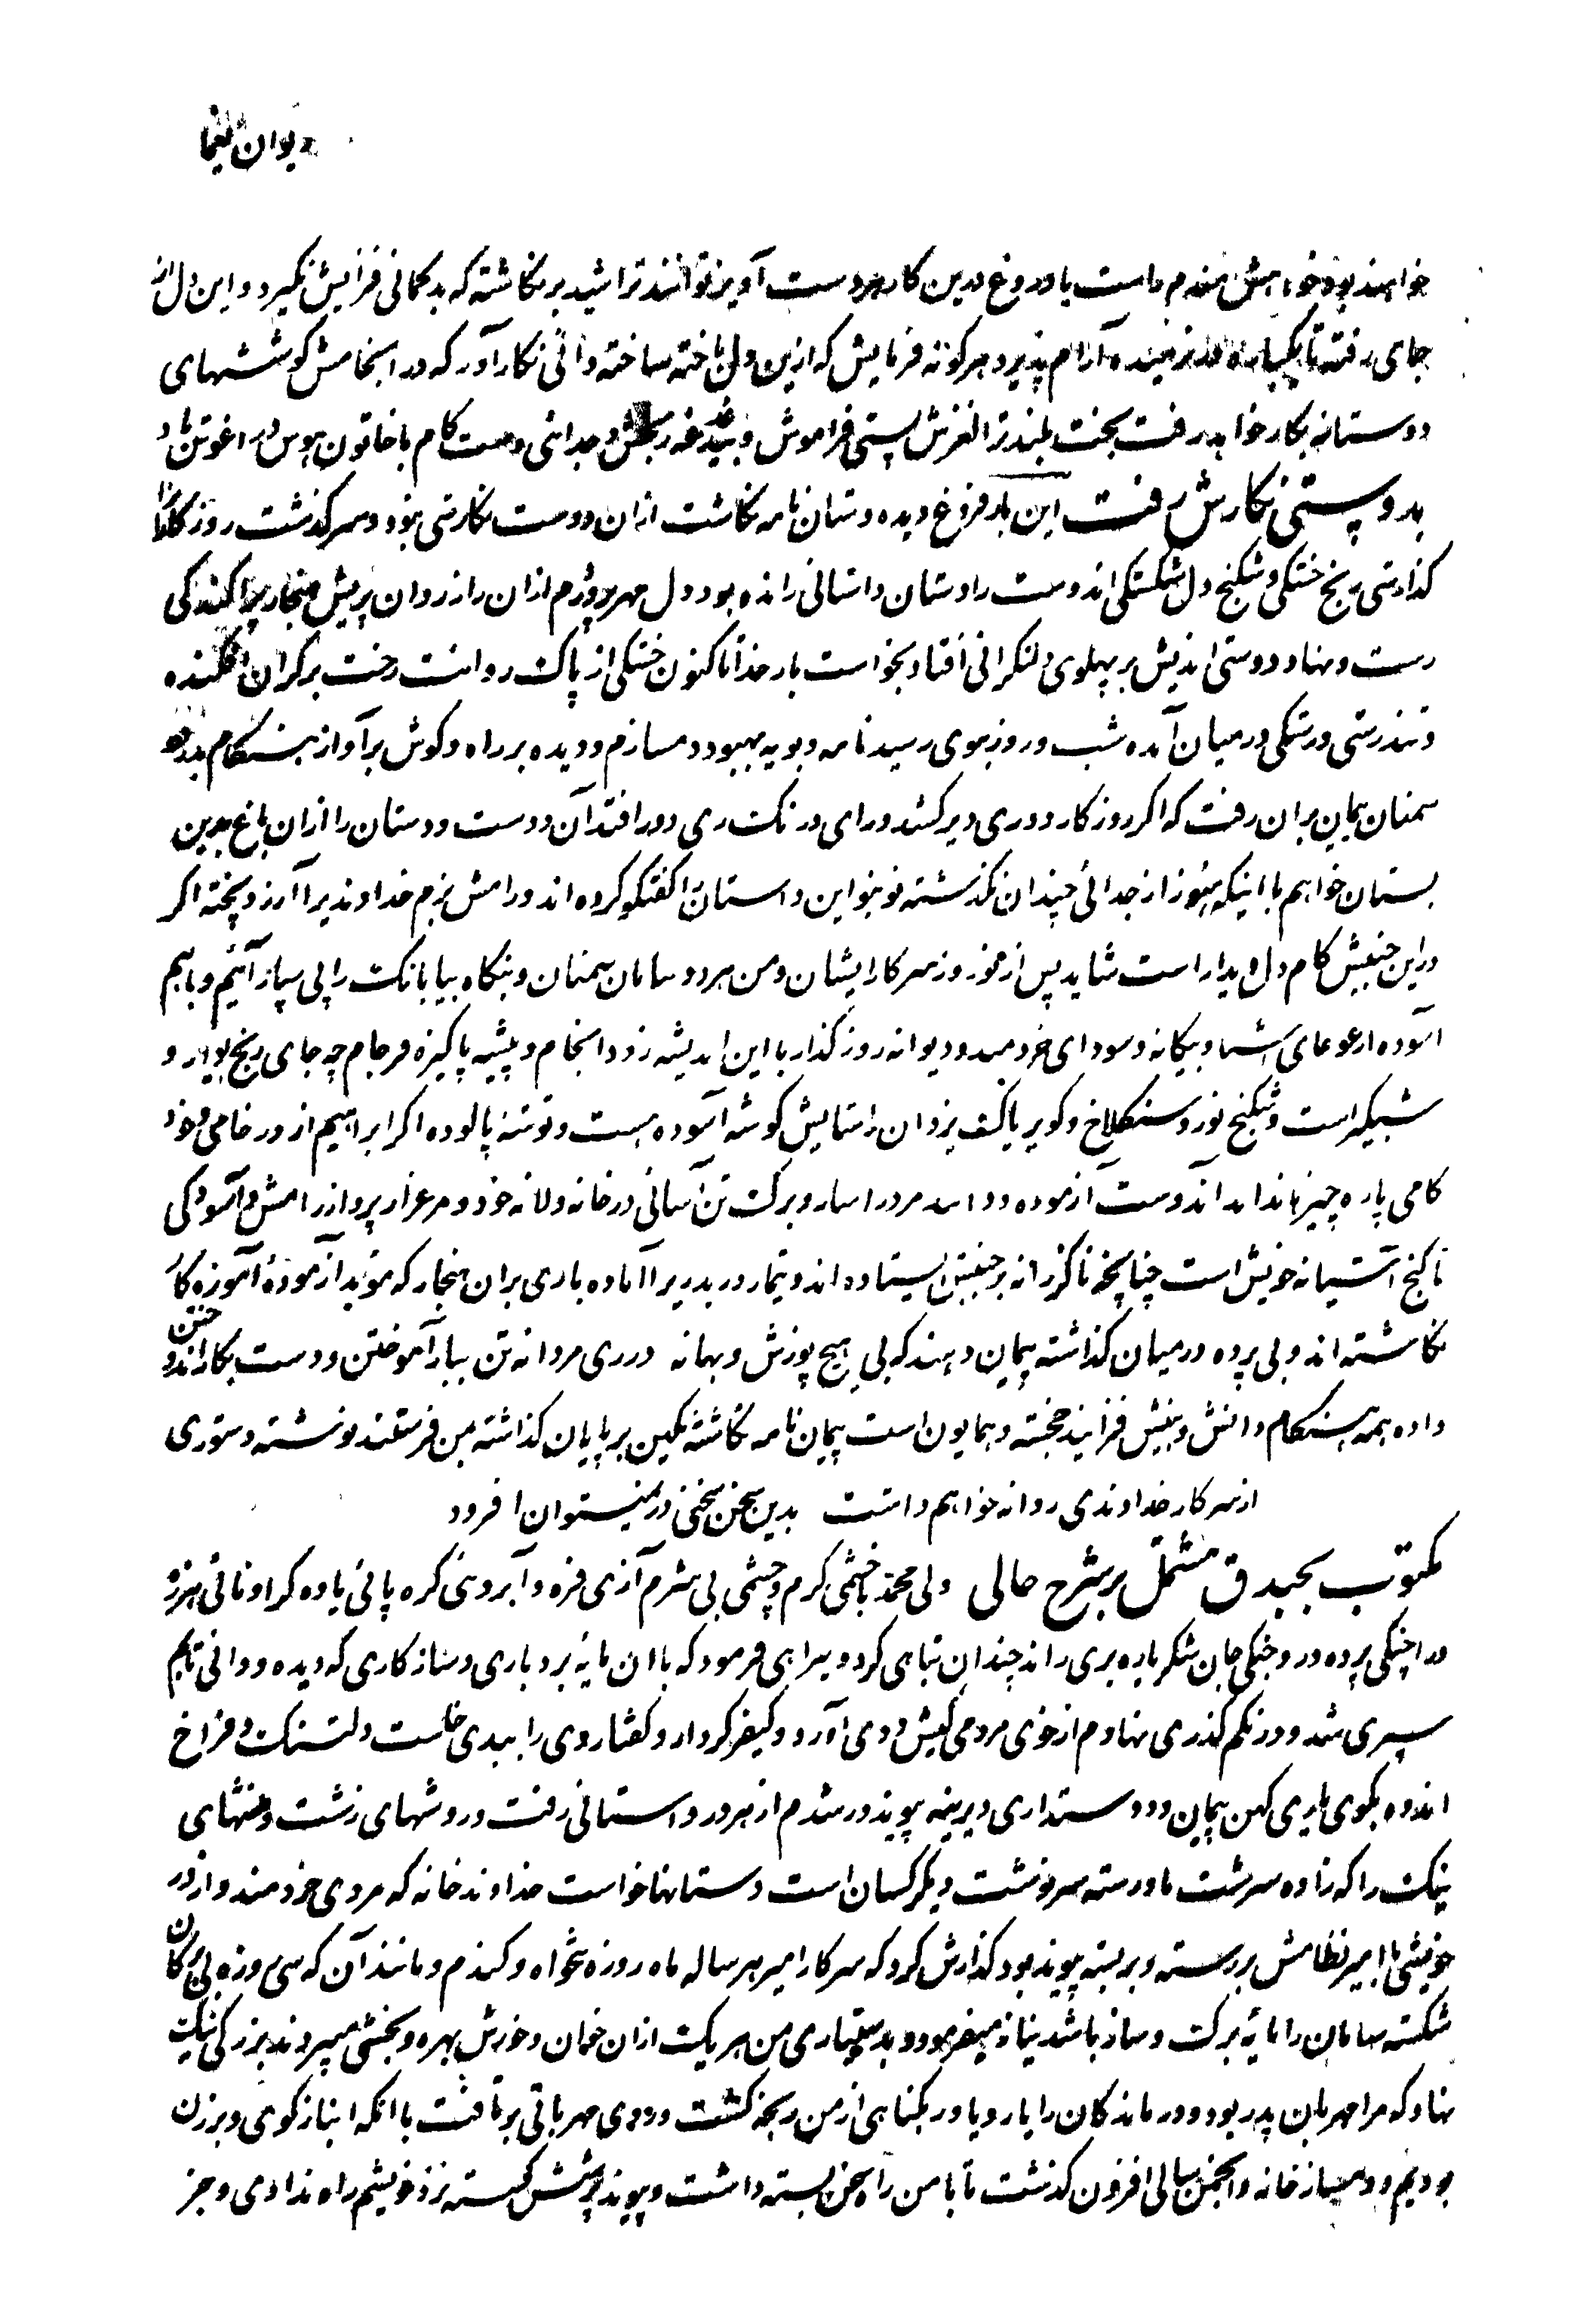 دیوان یغما
خواهند بود خواهش مندم راست یا دروغ بدین کار دست آویز توانند تراشید بر نکاشته که بدکمانی فزایش نکیرد و این دل از
جای رفته تا یکباره آرام پذیرد هرکونه فرمایش که ازین دل باخته ساخته دانی نکار آور که در انجامش کوششهای
دوستانه بکار خواهد رفت بخت بلندت از لغزش پستی فراموش و رنجش و جدائی دست کام با خاتون هوس در اغوشت باد
بدوستی نکارش رفت این بار فروغ دیده دستان نامه نکاشت از آن دوست نکارشی نبود و سرکذشت روزکار
کذارشی رنج خستکی و شکنج دل شکستکی اندوست را دستان داستانی رانده بود دل مهرپرورم ازان راز روان پریش هنجار پراکندکی
رست و نهاد دوستی اندیش بر پهلوی دلنکرانی افتاد بخواست بار خدا تا کنون خستکی از پاک روانت رخت بر کران افکنده
و تندرستی و رستکی در میان آمده شب و روز بموی رسید نامه و بویه بهبود دمسازم و دیده بر راه و کوش بر آواز هنکام بدرود
سمنان پیمان بران رفت که اکر روزکار دوری دیر کشد و رای درنک ری دور افتد آن دوست دوستان را ازان باغ بدین
بستان خواهم با اینکه هنوز از جدائی چندان نکذشته نو بنو این داستان را کفتکو کرده اند و رامش بزم خداوندیرا آرزو پخته اکر
در این جنبش کام دل دیدار است شاید پس از نوروز سرکار ایشان و من هر دو سامان سمنان و بنکاه بیابانک را پی سپار آئیم و باهم
آسوده از غوغای آشنا و بیکانه و سودای خردمند و دیوانه روز کذار با این اندیشه زود انجام و پیشه پاکیزه فرجام چه جای رنج ایوار و
شبکیر است و شکنج نورد سنکلاخ و کویر پاک یزدان را ستایش کوشه آسوده هست و توشه پالوده اکر ابراهیم از در خامی و خود
کامی پاره چیزها نداند آندوست آزموده داند مرد را ساز و برک تن آسانی در خانه و لانه خود و مرغ از پرواز رامش و آسودکی
تا کنج آشیانه خویش است چنانچه ناکزرانه بر جنبش ایستاده اند و تیمار در بدریرا آماده باری بران هنجار که موبد آزمودهٔ آموزه کار
نکاشته اند و بی پرده در میان کذاشته پیمان دهند که بی هیچ پوزش و بهانه در ری مردانه تن ببار آموختن و دست بکار اندوختن
داده همه هنکام دانش و بینش فزایند خجسته و همایون است پیمان نامه نکاشته نکین بر پایان کذاشته بمن فرستند نوشته دستوری
از سرکار خداوندی روانه خواهم داشت بدین سخن سخنی در نمیتوان افزود
مکتوب بحبدق مشتمل بر شرح حالی ولی محمد با خشمی کرم و چشمی بی شرم آزی فزه و آبروئی کره پائی یاوه کرا و نائی هرزه
درا چنکی پرده در و جنکی جان شکر باره بری راند چندان تباهی کرد و بیراهی فرمود که با ان مایه بردباری و سازکاری که دیده و دانی تابم
سپری شد و درنکم کذری نهادم از خوی مردمی کیش ددی آورد و کیفر کردار و کفتار وی را ببدی خاست دلتنک و فراخ
اندوه بکوی یاری کهن پیمان و دوستداری دیرینه پیوند در شدم از هر در داستانی رفت و روشهای زشت و منشهای
نیک را که زاده سرشت ما و رسته سرنوشت دیکر کسان است دستانها خواست خداوند خانه که مردی خردمند و از در
خویشی با امیر نظامش بر رسته و بر بسته پیوند بود کذارش کرد که سرکار امیر هر ساله ماه روزه تنخواه و کندم و مانند آن که سی روزه بی برکان
شکسته سامان را مایهٔ برک و ساز باشد نیاز میفرمود و بدستیاری من هر یک از ان خوان و خورش بهره و بخشی میبردند بزرکی نیک
نهاد که مرا مهربان پدر بود و درماندکان را یار و یاور بکناهی از من رنجه کشت و روی مهربانی برتافت با انکه انباز کوی و برزن
بودیم و دمساز خانه و انجمن سالی افزون کذشت تا با من راه سخن بسته داشت و پیوند پرسش کسسته نزد خویشم راه ندادی و جز